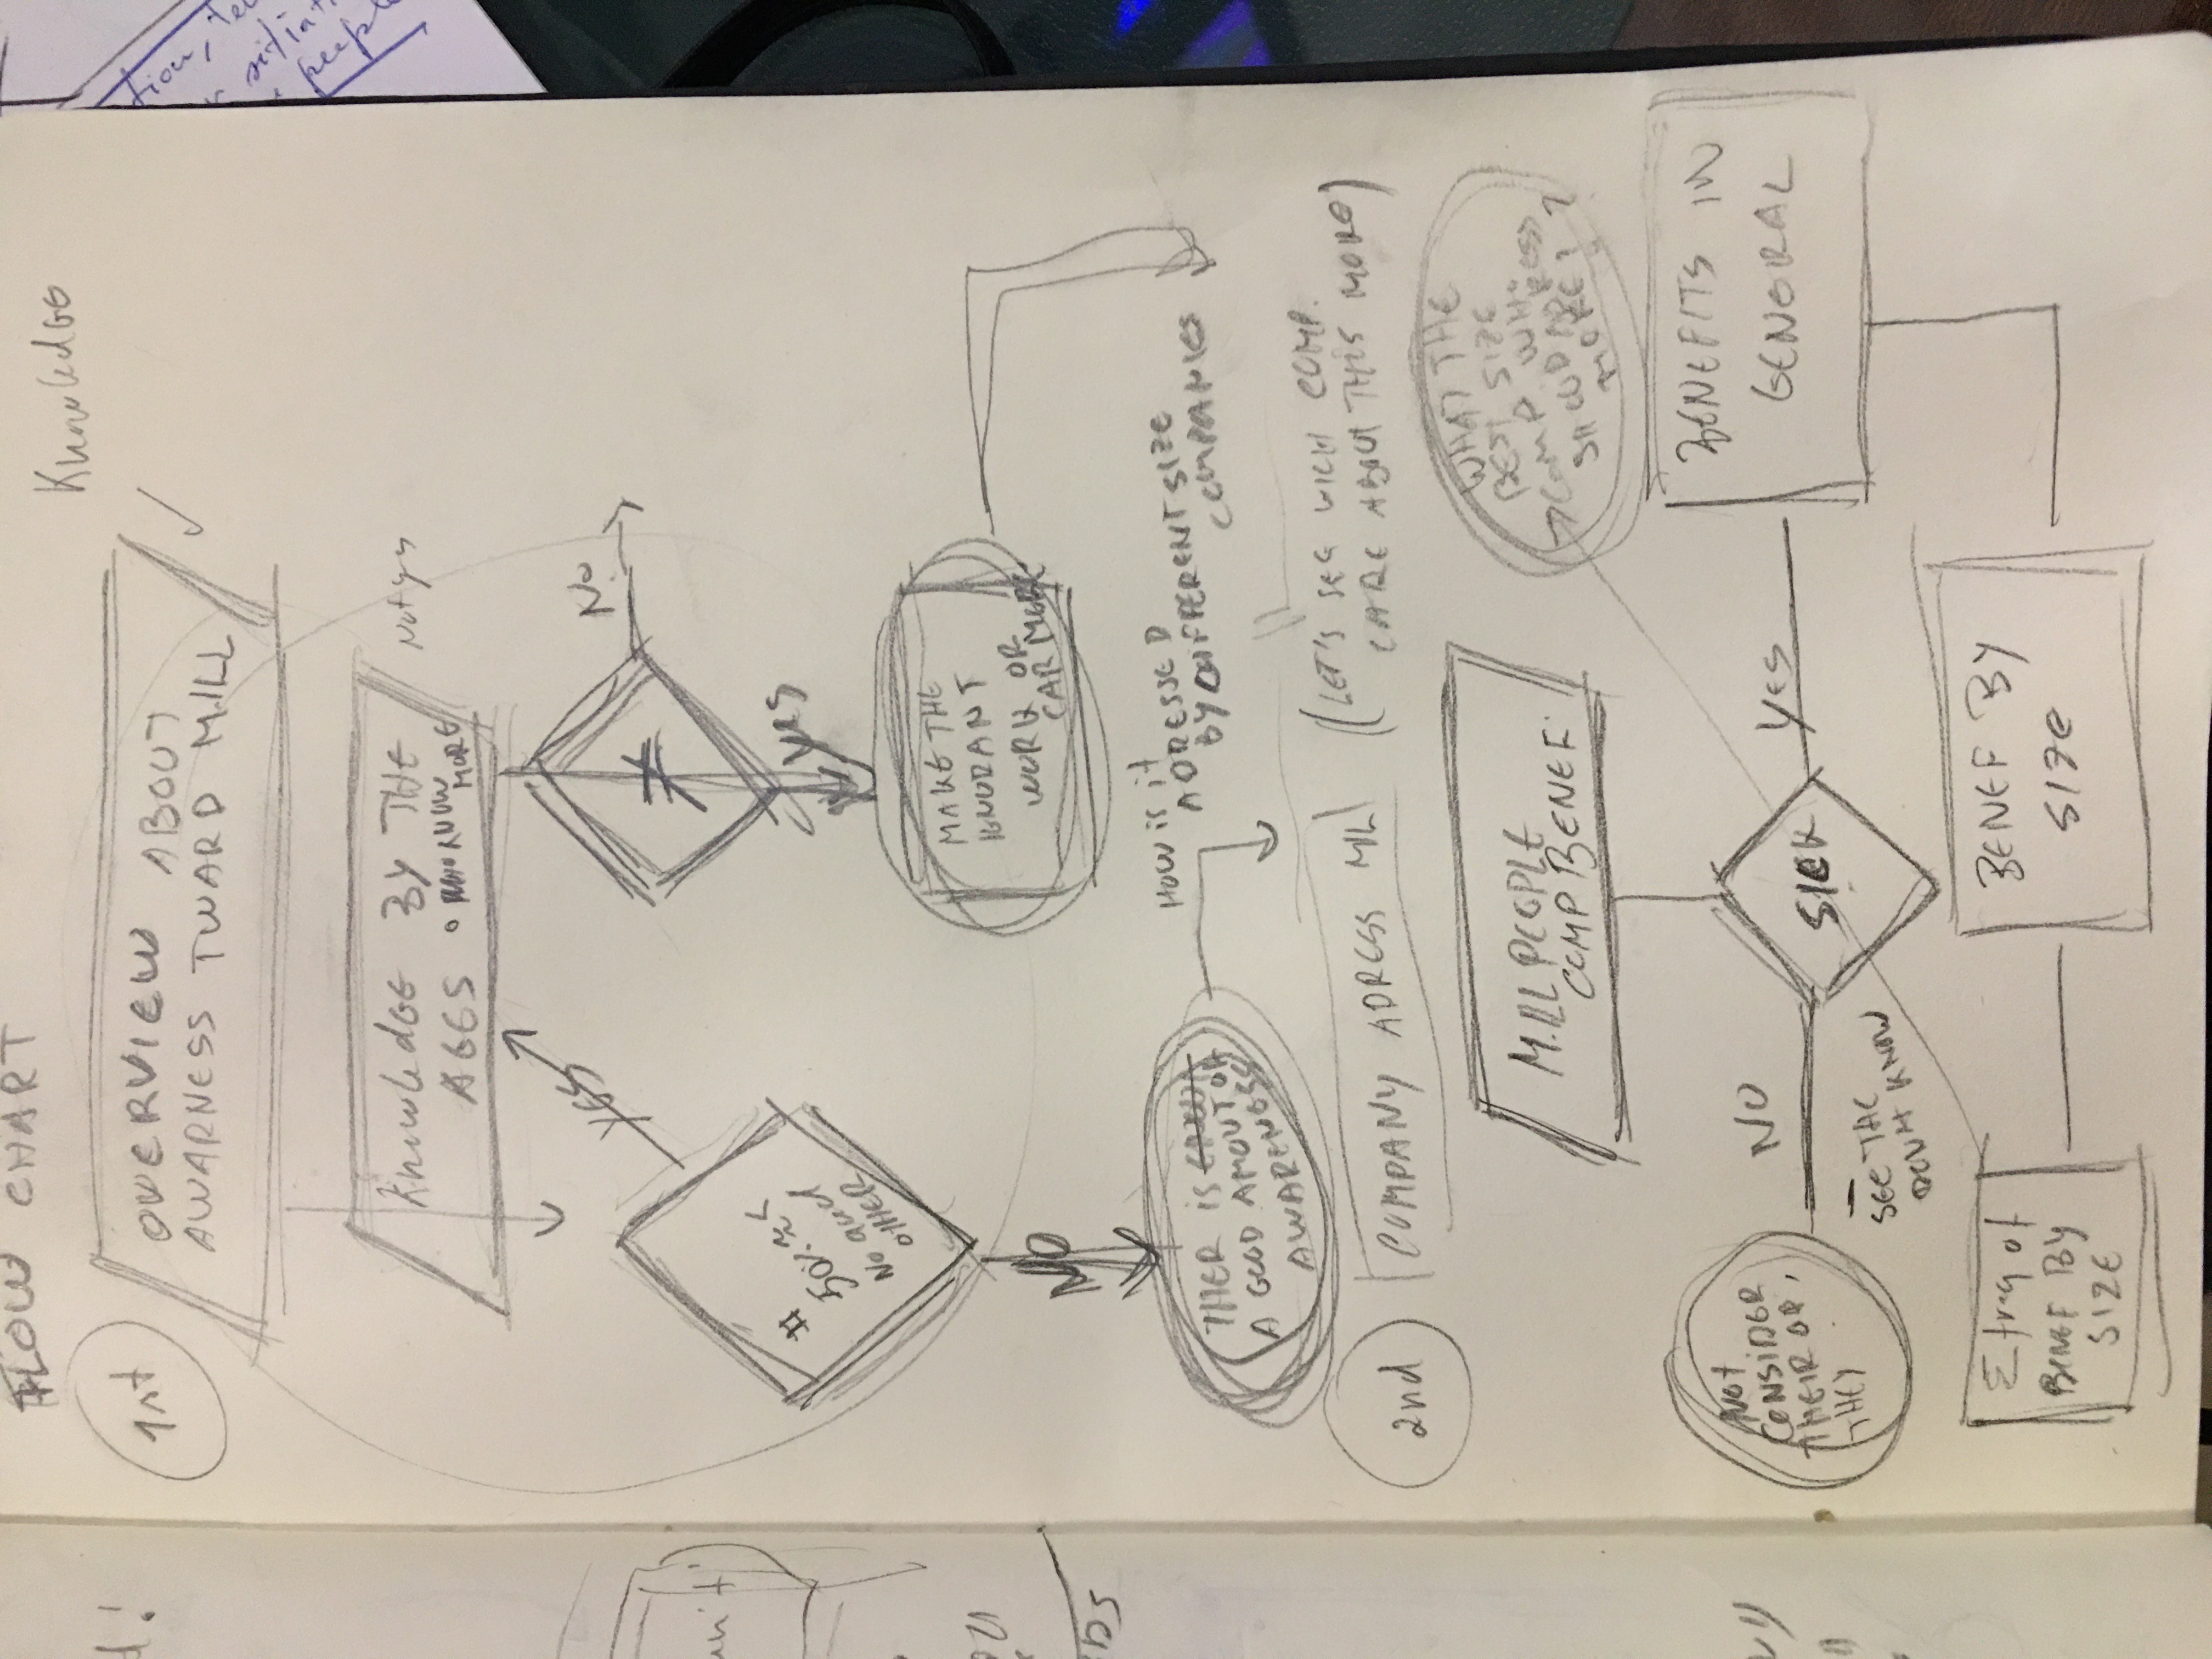 FLOW CHART
Knowledge
1st
OVERVIEW ABOUT
AWARNESS TWARD M.ILL
Knowledge BY THE
AGES
KNOW
MORE
YES
No
≠
#
50% ≈ <
No and
OTHER
YES
MAKE THE
IGNORANT
WORK OR
CAR MORE
NO
THER IS
A GOOD AMOUT OF
AWARENESS
HOW is it
ADRESSED
BY DIFFERENT SIZE
COMPANIES
2nd
COMPANY ADRESS MIL
(LET'S SEE WICH COMP.
CARE ABOUT THIS MORE)
M.ILL PEOPLE
COMP BENEF.
WHAT THE
BEST SIZE
COMP WHO
SHOUD ADRESS
MORE? ?
Not
CONSIDER
THEIR OP,
THEY
NO
SEE THE
DON'T KNOW
SICK
YES
BENEFITS IN
GENERAL
Σ freq of
BENEF BY
SIZE
BENEF BY
SIZE